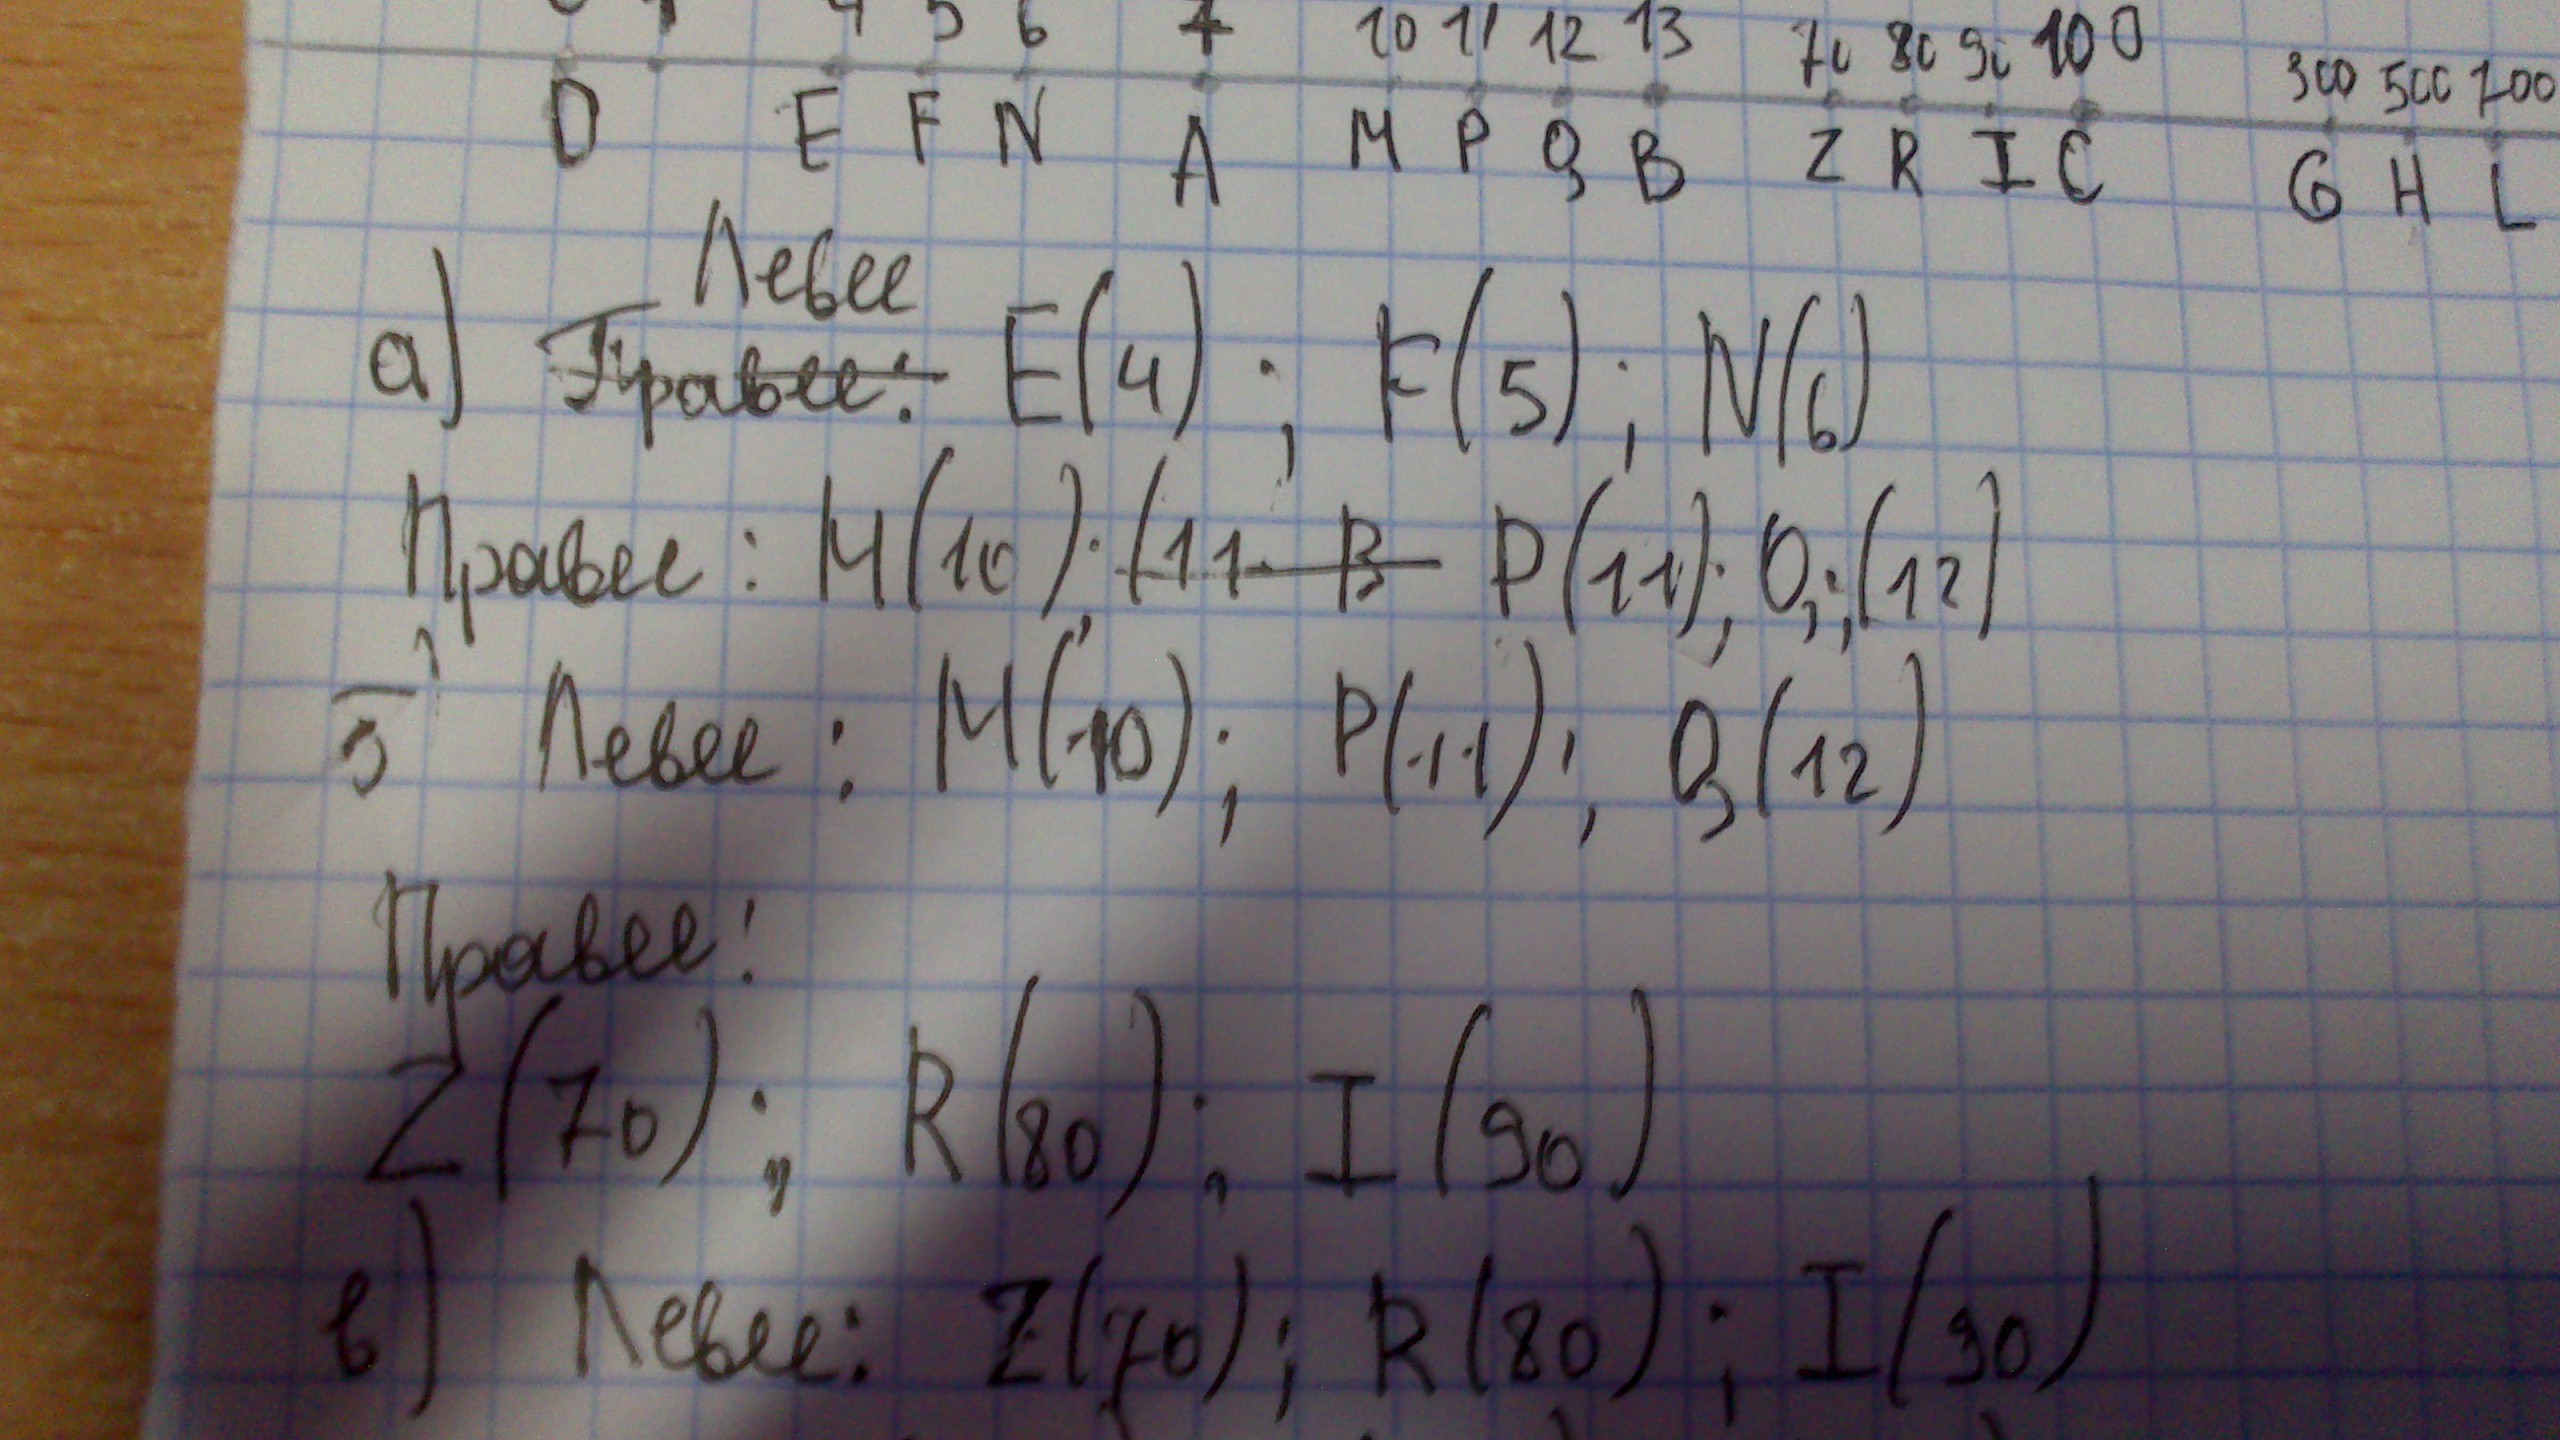 4 5 6 7 10 11 12 13 70 80 90 100 300 500 700
D E F N A M P Q B Z R I C G H L
Левее
а) Правее: E(4) ; F(5) ; N(6)
Правее : M(10) ; (11 B P(11) ; Q ; (12)
б) Левее : M(10) ; P(11) ; Q(12)
Правее :
Z(70) ; R(80) ; I(90)
в) Левее: Z(70) ; R(80) ; I(90)